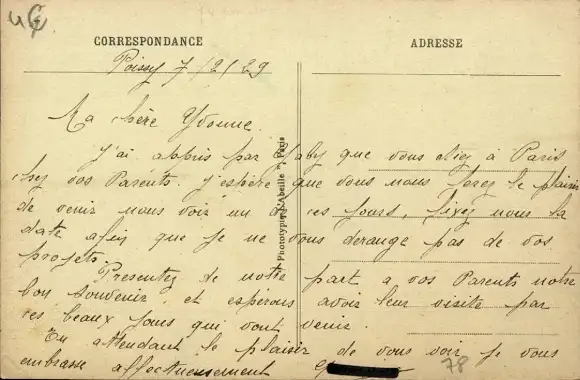 CORRESPONDANCE
ADRESSE
Poissy 7/2/29
Ma chère Yvonne.
J'ai appris par Gaby que vous étiez à Paris
chez vos Parents. J'espère que vous nous ferez le plaisir
de venir nous voir un de ces jours, fixez nous la
date afin que je ne vous dérange pas de vos
projets.
Presentez de notre part a vos Parents notre
bon souvenir et espérons avoir leur visite par
ces beaux jours qui vont venir.
En attendant le plaisir de vous voir je vous
embrasse affectueusement
Phototypie "L'Abeille" Paris
78